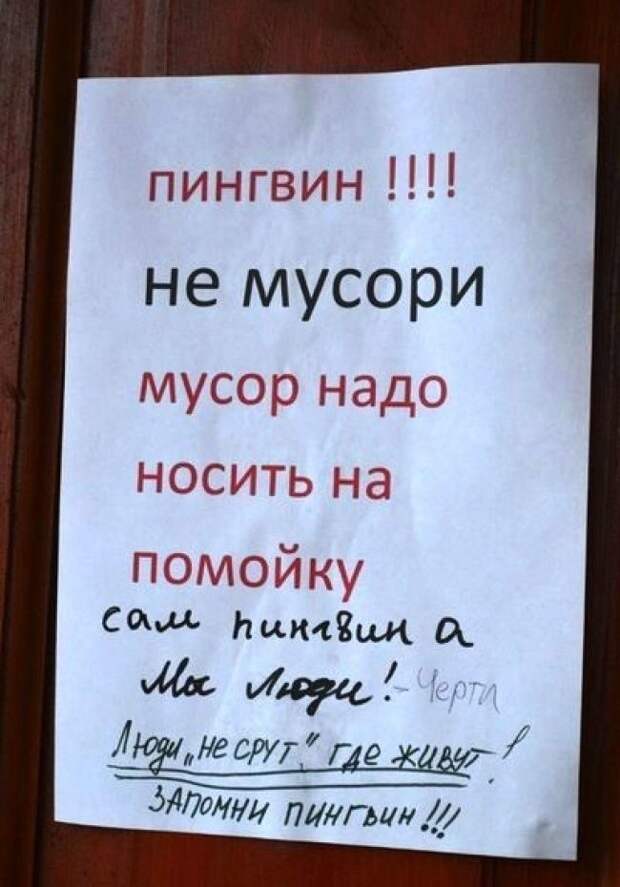 пингвин !!!!
не мусори
мусор надо
носить на
помойку
сам пингвин а
мы люди! - Черти
Люди "не срут" где живут!
Запомни пингвин !!!